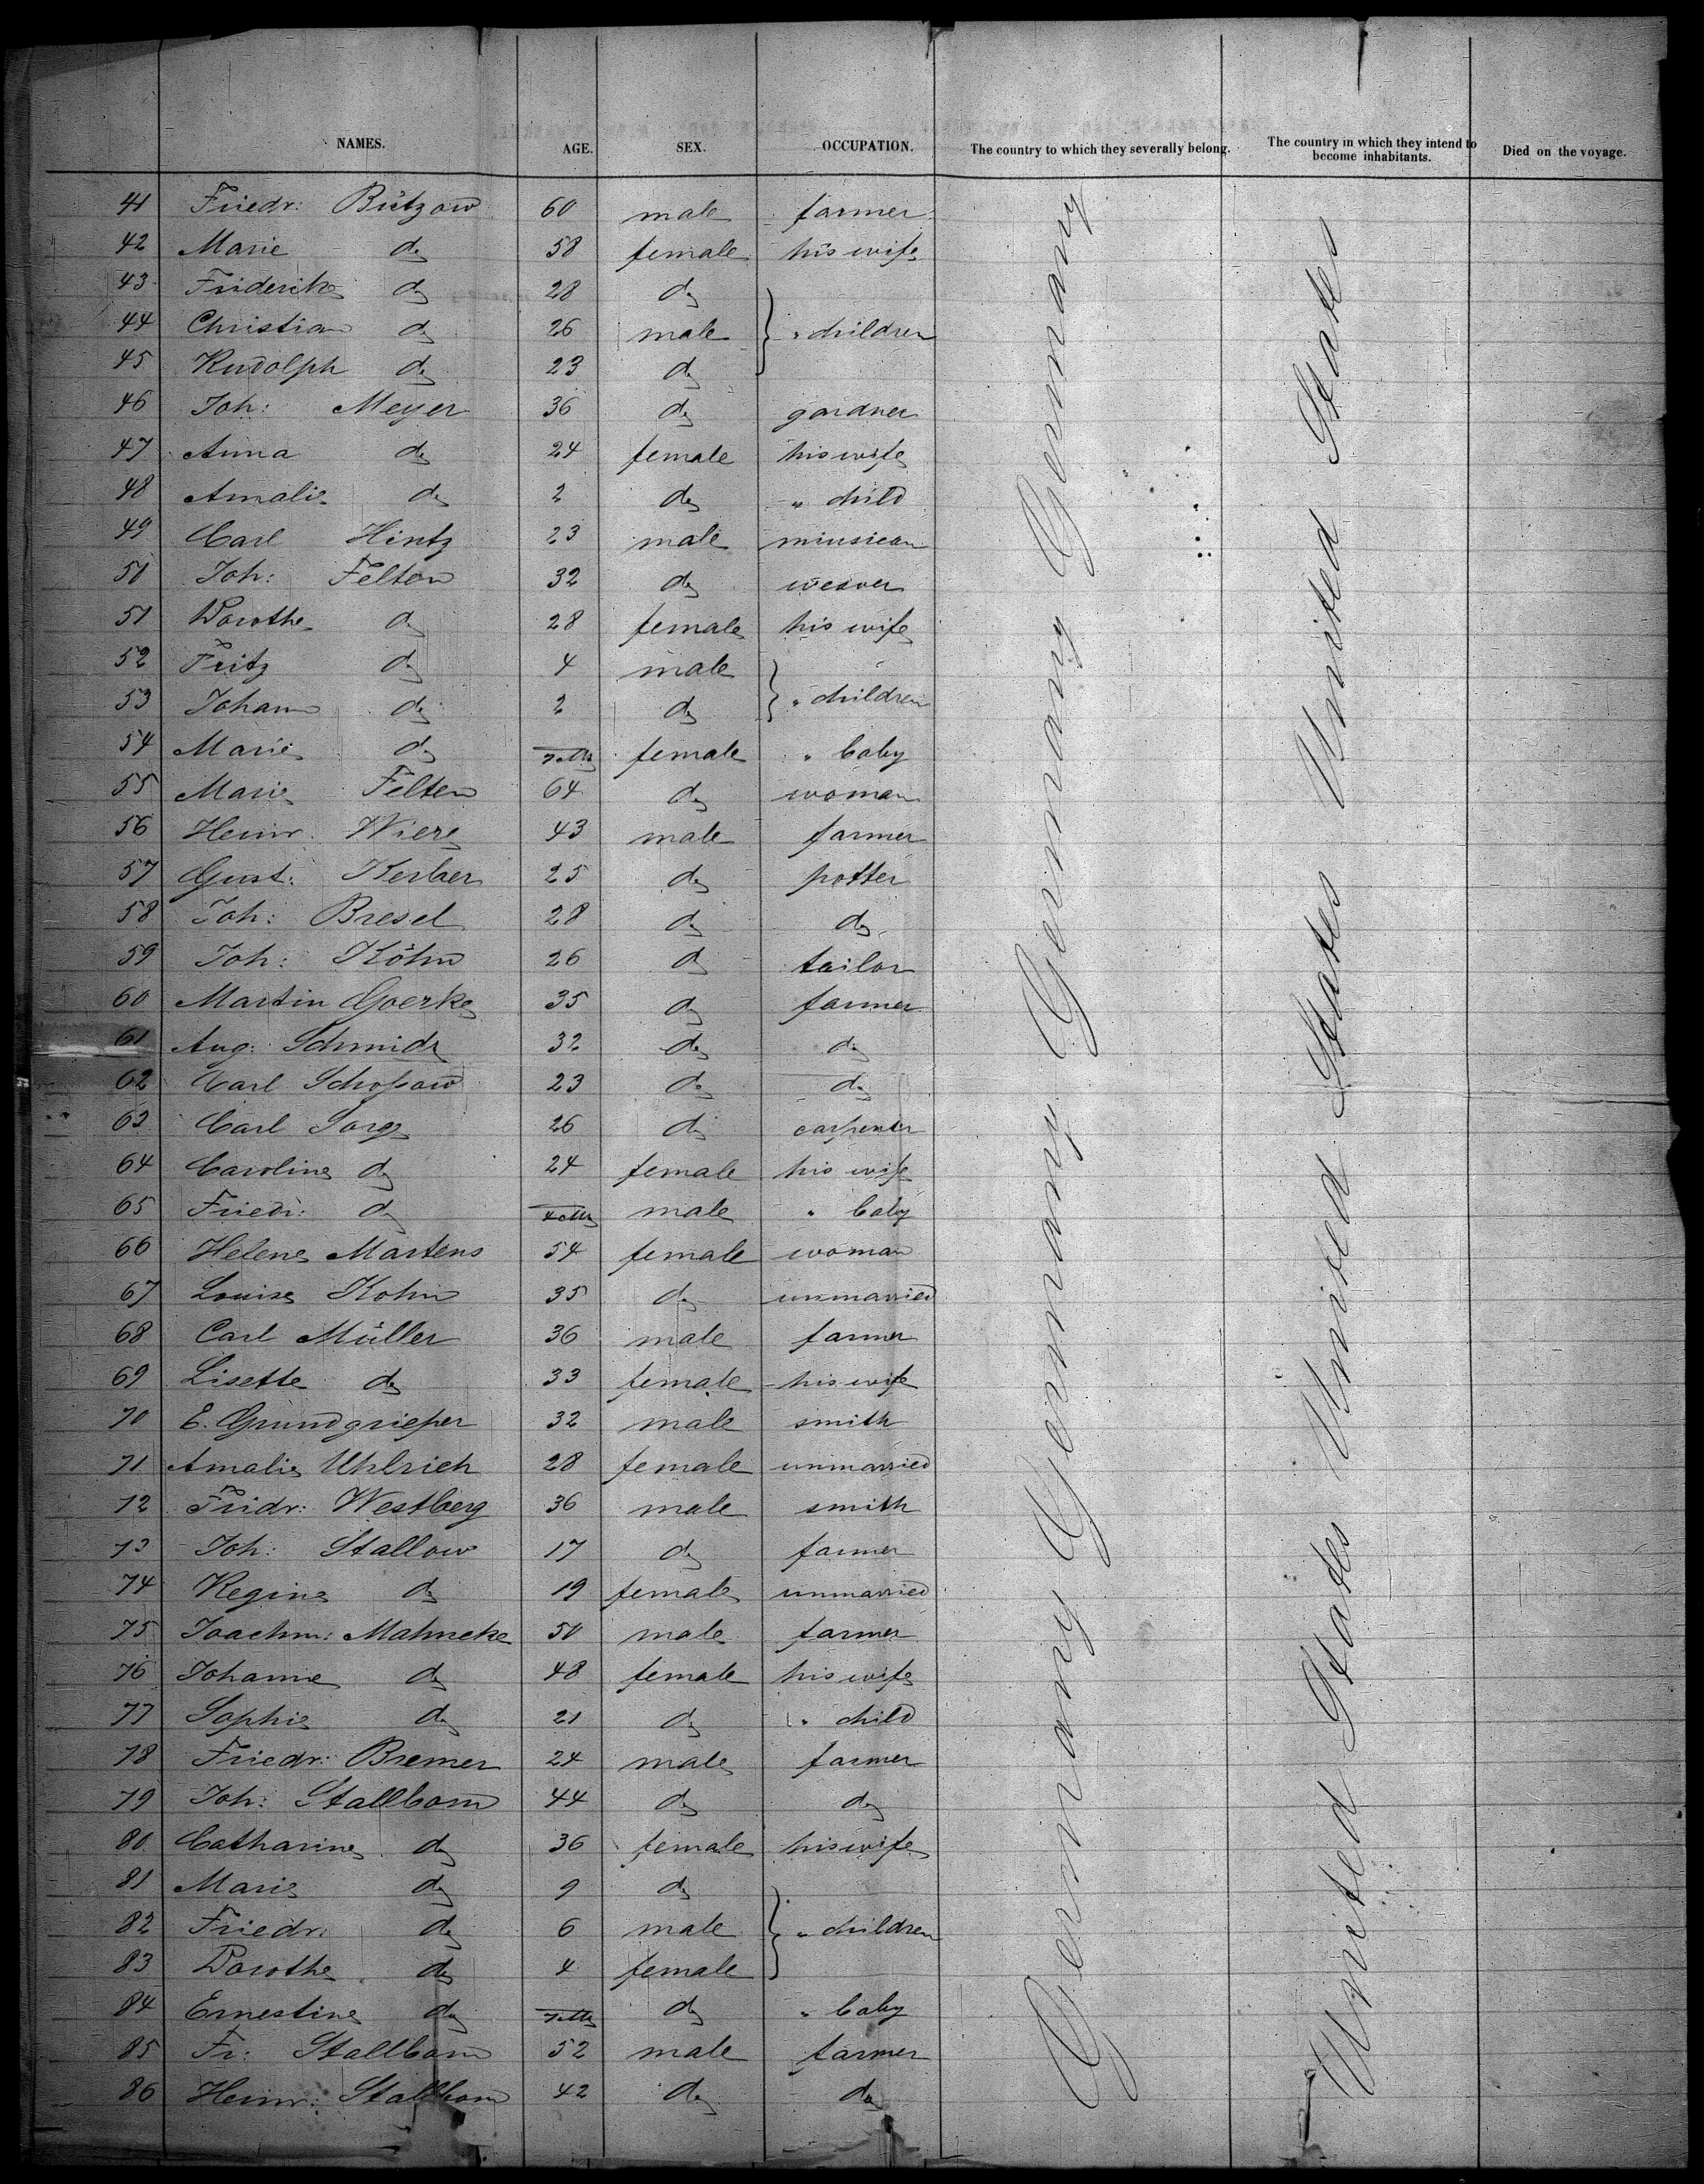 NAMES. AGE. SEX. OCCUPATION. The country to which they severally belong. The country in which they intend to become inhabitants. Died on the voyage.
41 Friedr: Bützow 60 male farmer
42 Marie do 58 female his wife
43 Friderike do 28 do
44 Christian do 26 male } " children
45 Rudolph do 23 do
46 Joh: Meyer 36 do gardner
47 Anna do 24 female his wife
48 Amalie do 2 do " child
49 Carl Hintz 23 male miusican
50 Joh: Felten 32 do weaver
51 Dorothe do 28 female his wife
52 Fritz do 4 male
53 Johann do 2 do } " children
54 Marie do female " baby
55 Marie Felten 64 do woman
56 Heinr. Wiere 43 male farmer
57 Gust: Kerber 25 do potter
58 Joh: Bresel 28 do do
59 Joh: Köhn 26 do tailor
60 Martin Goerke 35 do farmer
61 Aug: Schmidt 32 do do
62 Carl Schoßow 23 do do
63 Carl Sorge 26 do carpenter
64 Caroline do 24 female his wife
65 Friedr: do male " baby
66 Helene Martens 54 female woman
67 Louise Kohn 35 do unmarried
68 Carl Müller 36 male farmer
69 Lisette do 33 female his wife
70 E. Grundgrieper 32 male smith
71 Amalie Uhlrich 28 female unmarried
72 Fridr: Westberg 36 male smith
73 Joh: Stallow 17 do farmer
74 Regine do 19 female unmarried
75 Joachm: Mahncke 50 male farmer
76 Johanne do 48 female his wife
77 Sophie do 21 do " child
78 Friedr: Bremer 24 male farmer
79 Joh: Stallbom 44 do do
80 Catharine do 36 female his wife
81 Marie do 9 do
82 Friedr: do 6 male } " children
83 Dorothe do 4 female
84 Ernestine do do " baby
85 Fr: Stallbom 52 male farmer
86 Heinr: Stallbom 42 do do
Germany Germany Germany Germany
United States United States United States